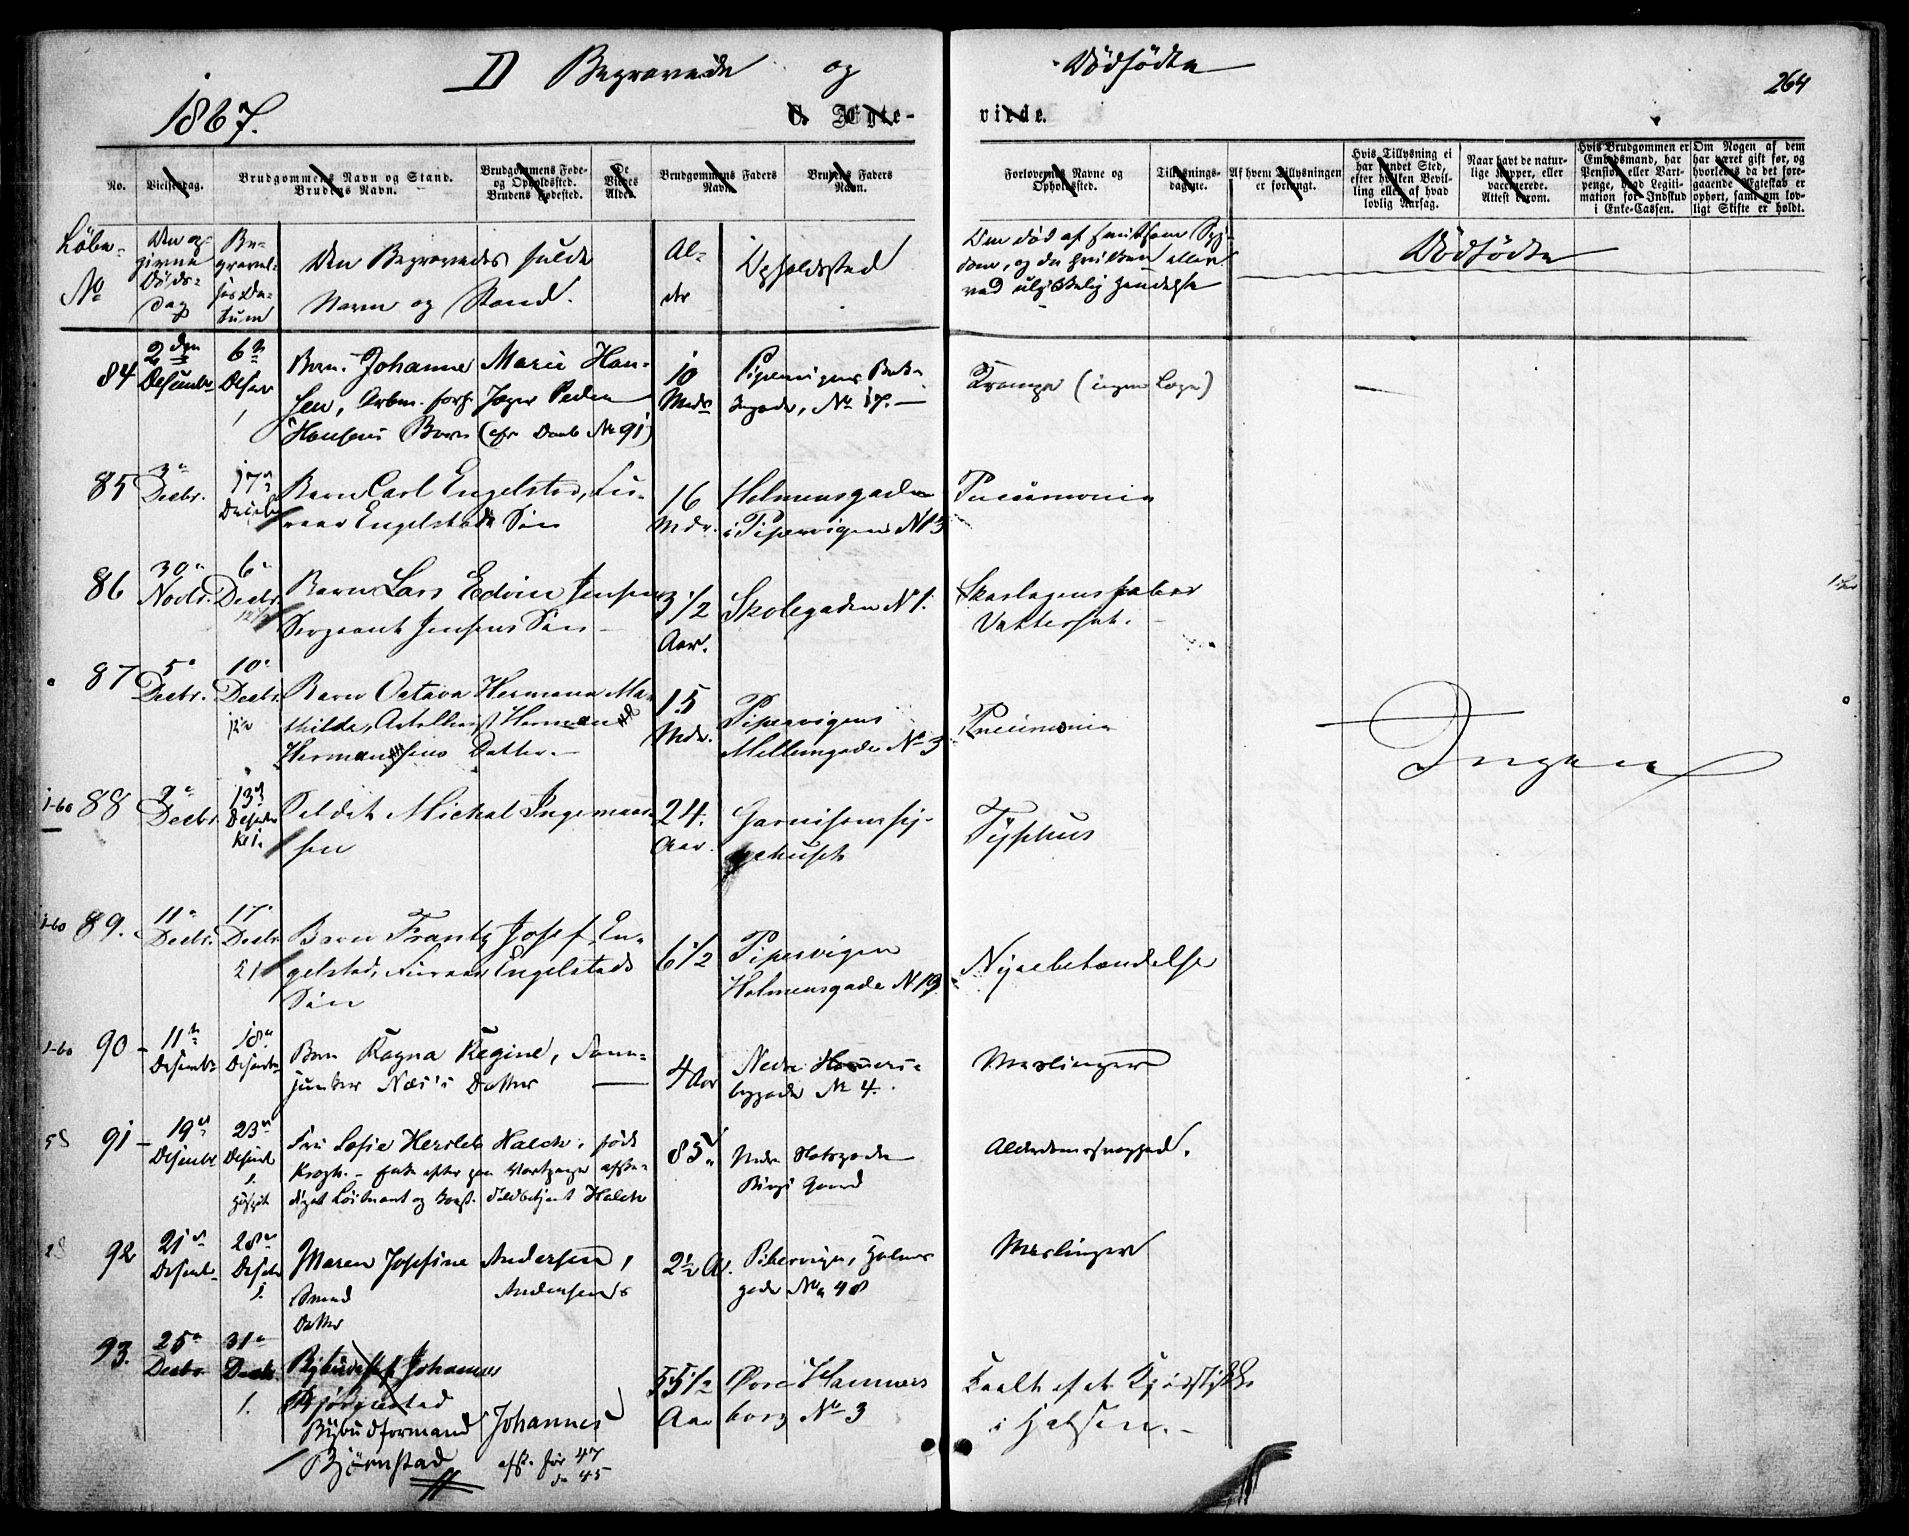 D Begravede og Dödfödte
264
1867.
C. Ægte-
viede.
No.
Vielsesdag.
Brudgommens Navn og Stand.
Brudens Navn.
Brudgommens Føde-
og Opholdssted.
Brudens Fødested.
De
Viedes
Alder.
Brudgommens Faders
Navn.
Brudens Faders
Navn.
Forlovernes Navne og
Opholdssted.
Tillysnings-
dagene.
Af hvem Tillysningen
er forlangt.
Hvis Tillysning ei
har fundet Sted,
efter hvilken Bevil-
ling eller af hvad
lovlig Aarsag.
Naar havt de natur-
lige Kopper, eller
vaccinerede.
Attest derom.
Hvis Brudgommen er
Embedsmand, har
Pension eller Vart-
penge, hvad Legiti-
mation for Indskud
i Enke-Cassen.
Om Nogen af dem
har været gift før, og
hvorledes da det fore-
gaaende Ægteskab er
ophørt, samt om lov-
ligt Skifte er holdt.
Löbe-
No
Den op-
givne
Döds-
dag
Be-
gravel-
ses Da-
tum
Den Begravedes fulde
Navn og Stand.
Al-
der
Opholdssted
Den död af smitsom Syg-
dom, og da hvilken eller
ved ulykkelig Hendelse
Dödfödte
84
2den
Desembr
6te
Barn Johanne Marie Han-
sen, Arbm. forh. Jæger Peder
Hansens Barn (cfr Daab No 91)
10
Mdr
Pipervigens
gade, No 17.
Krampe (ingen Læge)
85
3e
Decbr.
17e
Barn Carl Engelstad, Fu-
raar Engelstads Sön
16
Mdr.
Holmensgaden
i Pipervigen N 13
Pneumonia
86
30e
Novbr.
6e
Decbr.
Barn Lars Edvin Jensen
Sergeant Jensens Sön
3 1/2
Aar.
Skolegaden N 1.
Skarlagensfeber
Vattersot.
87
5e
Decbr.
10e
Decbr.
Barn Octava Hermana Ma-
thilde, Artellerist Herman
Hermansens Datter.
15
Mdr.
Pipervigens
Mellemgade No 3
Pneumonia
Ingen
1-60
88
9e
Decbr.
13de
Desember
Kl 1.
Soldat Michal Ingemann-
sen
24.
Aar.
Garnisonssy-
gehuset
Typhus
1-60
89.
11e
Decbr.
17e
Decbr
Barn Frantz Josef En-
gelstad, Furaar Engelstads
Sön
6 1/2
Pipervigen
Holmensgade N 13
Nyrebetændelse
1-60
90
11te
Desembr
18e
Desembr
Barn Ragna Regine, Fann-
junker Næs's Datter
4 Aar
Nedre Hammers-
borggade No 4.
Meslinger
91
19de
Desembr
23de
Desembr
Fru Sofie Hersleb Halck, född
Krogh. Enke efter paa Vartpenge afske-
diget Löitnant og Halck
85
Nedre Slotsgade
Gaard
Alderdomssvaghed.
92
21de
Desembr
28de
Maren Josefine Andersen,
Smed Andersens
Datter
2 1/2 A.
Pibervigen, Holmens
gade No 48
Meslinger
93.
25e
Decbr
31e
Decbr
1.
Johannes
Björnstad
Bybudformand Johannes
Björnstad
afsk. for 47
do 45
55 1/2
Aar
Övre Hammers
borg No 3
Kvalt af et Kjödstykke
i Halsen.